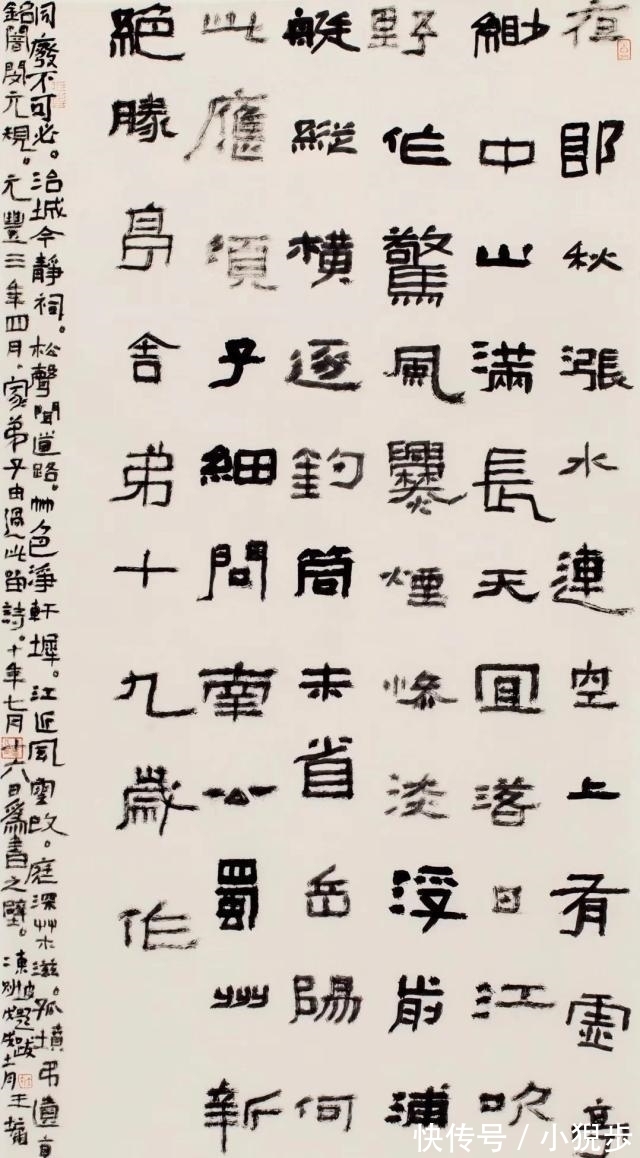 夜郎秋漲水連空上有虛亭
緲中山滿長天宜落日江吹
野作驚風爨煙慘淡浮前浦
艇縱橫逐釣筒未省岳陽何
此應須子細問南公蜀州新
絕勝亭舍弟十九歲作
廢不可必。冶城今靜祠。松聲聞道路。竹色淨軒墀。江近風雲改。庭深草木滋。孤墳弔遺直
銘闇閔元規。元豐三年四月。家弟子由過此留詩。十年七月十六日爲書之壁。
坡題跋
十一月王鏞
快传号 / 小猊步